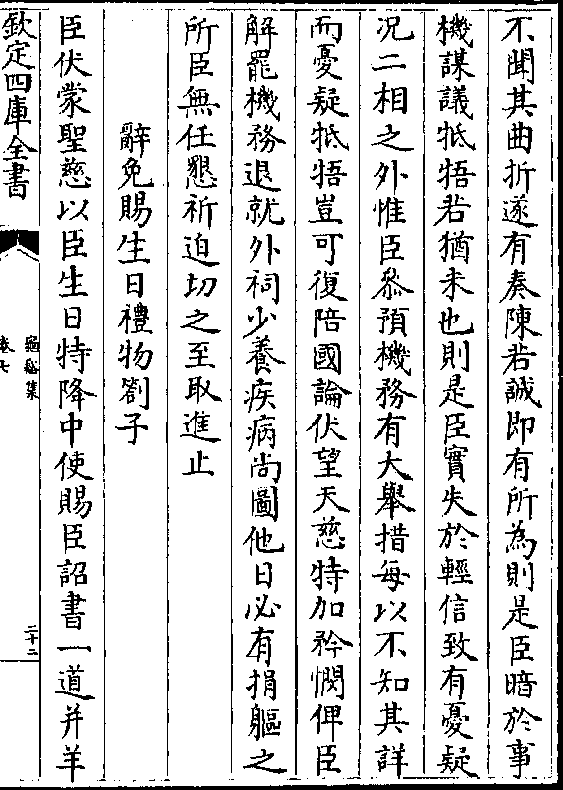 不聞其曲折遂有奏陳若誠即有所為則是臣暗於事
機謀議牴牾若猶未也則是臣實失於輕信致有憂疑
况二相之外惟臣叅預機務有大舉措每以不知其詳
而憂疑牴牾豈可復陪國論伏望天慈特加矜憫俾臣
解罷機務退就外祠少養疾病尚圖他日必有捐軀之
所臣無任懇祈迫切之至取進止
辭免賜生日禮物劄子
臣伏蒙聖慈以臣生日特降中使賜臣詔書一道并羊
欽定四庫全書
龜谿集
卷七
三十二